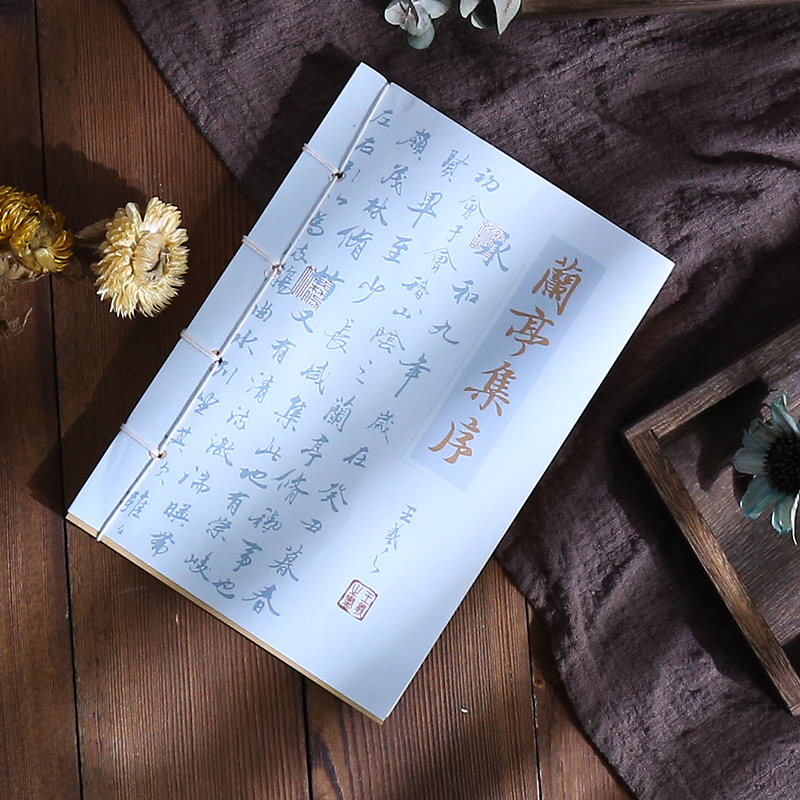 蘭亭集序
王羲之
永和九年歲在癸丑暮春
初會于會稽山陰之蘭亭脩禊事也
賢畢至少長咸集此地有崇峻
領茂林脩竹又有清流激湍暎帶
左右引以為流觴曲水列坐其次雖